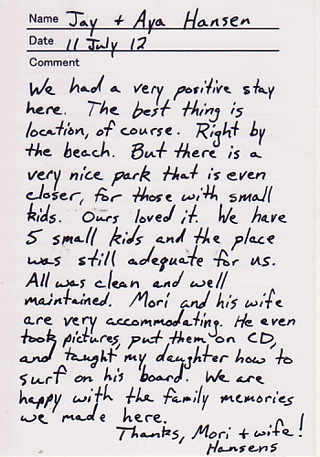 Name Jay + Aya Hansen
Date 11 July 12
Comment
We had a very positive stay
here. The best thing is
location, of course. Right by
the beach. But there is a
very nice park that is even
closer, for those with small
kids. Ours loved it. We have
5 small kids and the place
was still adequate for us.
All was clean and well
maintained. Mori and his wife
are very accommodating. He even
took pictures, put them on CD,
and taught my daughter how to
surf on his board. We are
happy with the family memories
we made here.
Thanks, Mori + wife!
Hansens